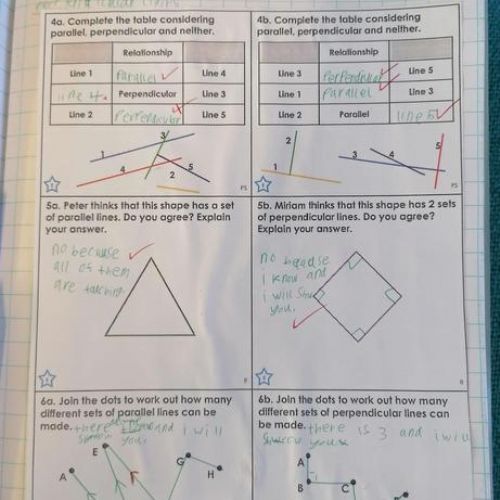 4a. Complete the table considering
parallel, perpendicular and neither.
Relationship
Line 1 Parallel Line 4
line 4 Perpendicular Line 3
Line 2 Perpendicular Line 5
1
3
4
5
2
PS
4b. Complete the table considering
parallel, perpendicular and neither.
Relationship
Line 3 Perpendicular Line 5
Line 1 Parallel Line 3
Line 2 Parallel line 5
2
1
3
4
5
PS
5a. Peter thinks that this shape has a set
of parallel lines. Do you agree? Explain
your answer.
no because
all of them
are
R
5b. Miriam thinks that this shape has 2 sets
of perpendicular lines. Do you agree?
Explain your answer.
no
I know and
i will
you.
R
6a. Join the dots to work out how many
different sets of parallel lines can be
made. there and i will
you.
E
A
G
H
6b. Join the dots to work out how many
different sets of perpendicular lines can
be made. there is 3 and i will
A
B
C